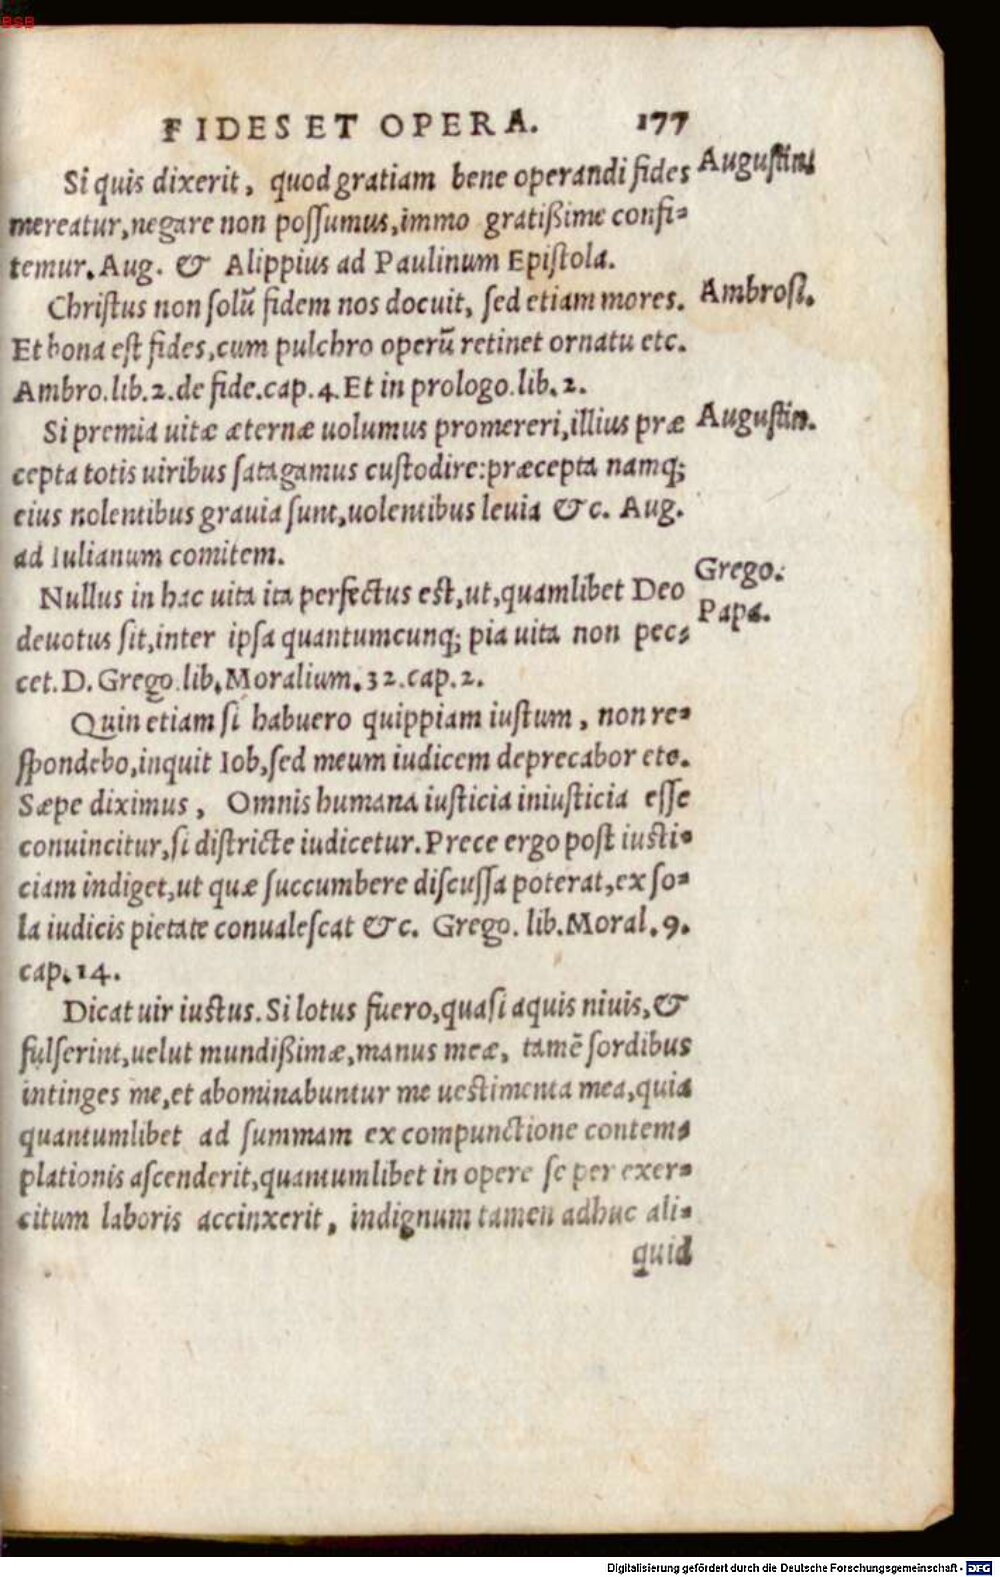 BSB
FIDES ET OPERA. 177
Si quis dixerit, quod gratiam bene operandi fides
Augustin.
mereatur, negare non possumus, immo gratißime confi-
temur. Aug. & Alippius ad Paulinum Epistola.
Christus non solũ fidem nos docuit, sed etiam mores.
Ambrosi.
Et bona est fides, cum pulchro operũ retinet ornatu etc.
Ambro. lib. 2. de fide. cap. 4. Et in prologo. lib. 2.
Si premia uitæ æternæ uolumus promereri, illius præ
Augustin.
cepta totis uiribus satagamus custodire: præcepta namq;
eius nolentibus grauia sunt, uolentibus leuia &c. Aug.
ad Iulianum comitem.
Nullus in hac uita ita perfectus est, ut, quamlibet Deo
Grego.
Papa.
deuotus sit, inter ipsa quantumcunq; pia uita non pec-
cet. D. Grego. lib. Moralium. 32. cap. 2.
Quin etiam si habuero quippiam iustum, non re-
spondebo, inquit Iob, sed meum iudicem deprecabor etc.
Sæpe diximus, Omnis humana iusticia iniusticia esse
conuincitur, si districte iudicetur. Prece ergo post iusti-
ciam indiget, ut quæ succumbere discussa poterat, ex so-
la iudicis pietate conualescat &c. Grego. lib. Moral. 9.
cap. 14.
Dicat uir iustus. Si lotus fuero, quasi aquis niuis, &
fulserint, uelut mundißimæ, manus meæ, tamẽ sordibus
intinges me, et abominabuntur me uestimenta mea, quia
quantumlibet ad summam ex compunctione contem-
plationis ascenderit, quantumlibet in opere se per exer-
citum laboris accinxerit, indignum tamen adhuc ali-
quid
Digitalisierung gefördert durch die Deutsche Forschungsgemeinschaft - DFG